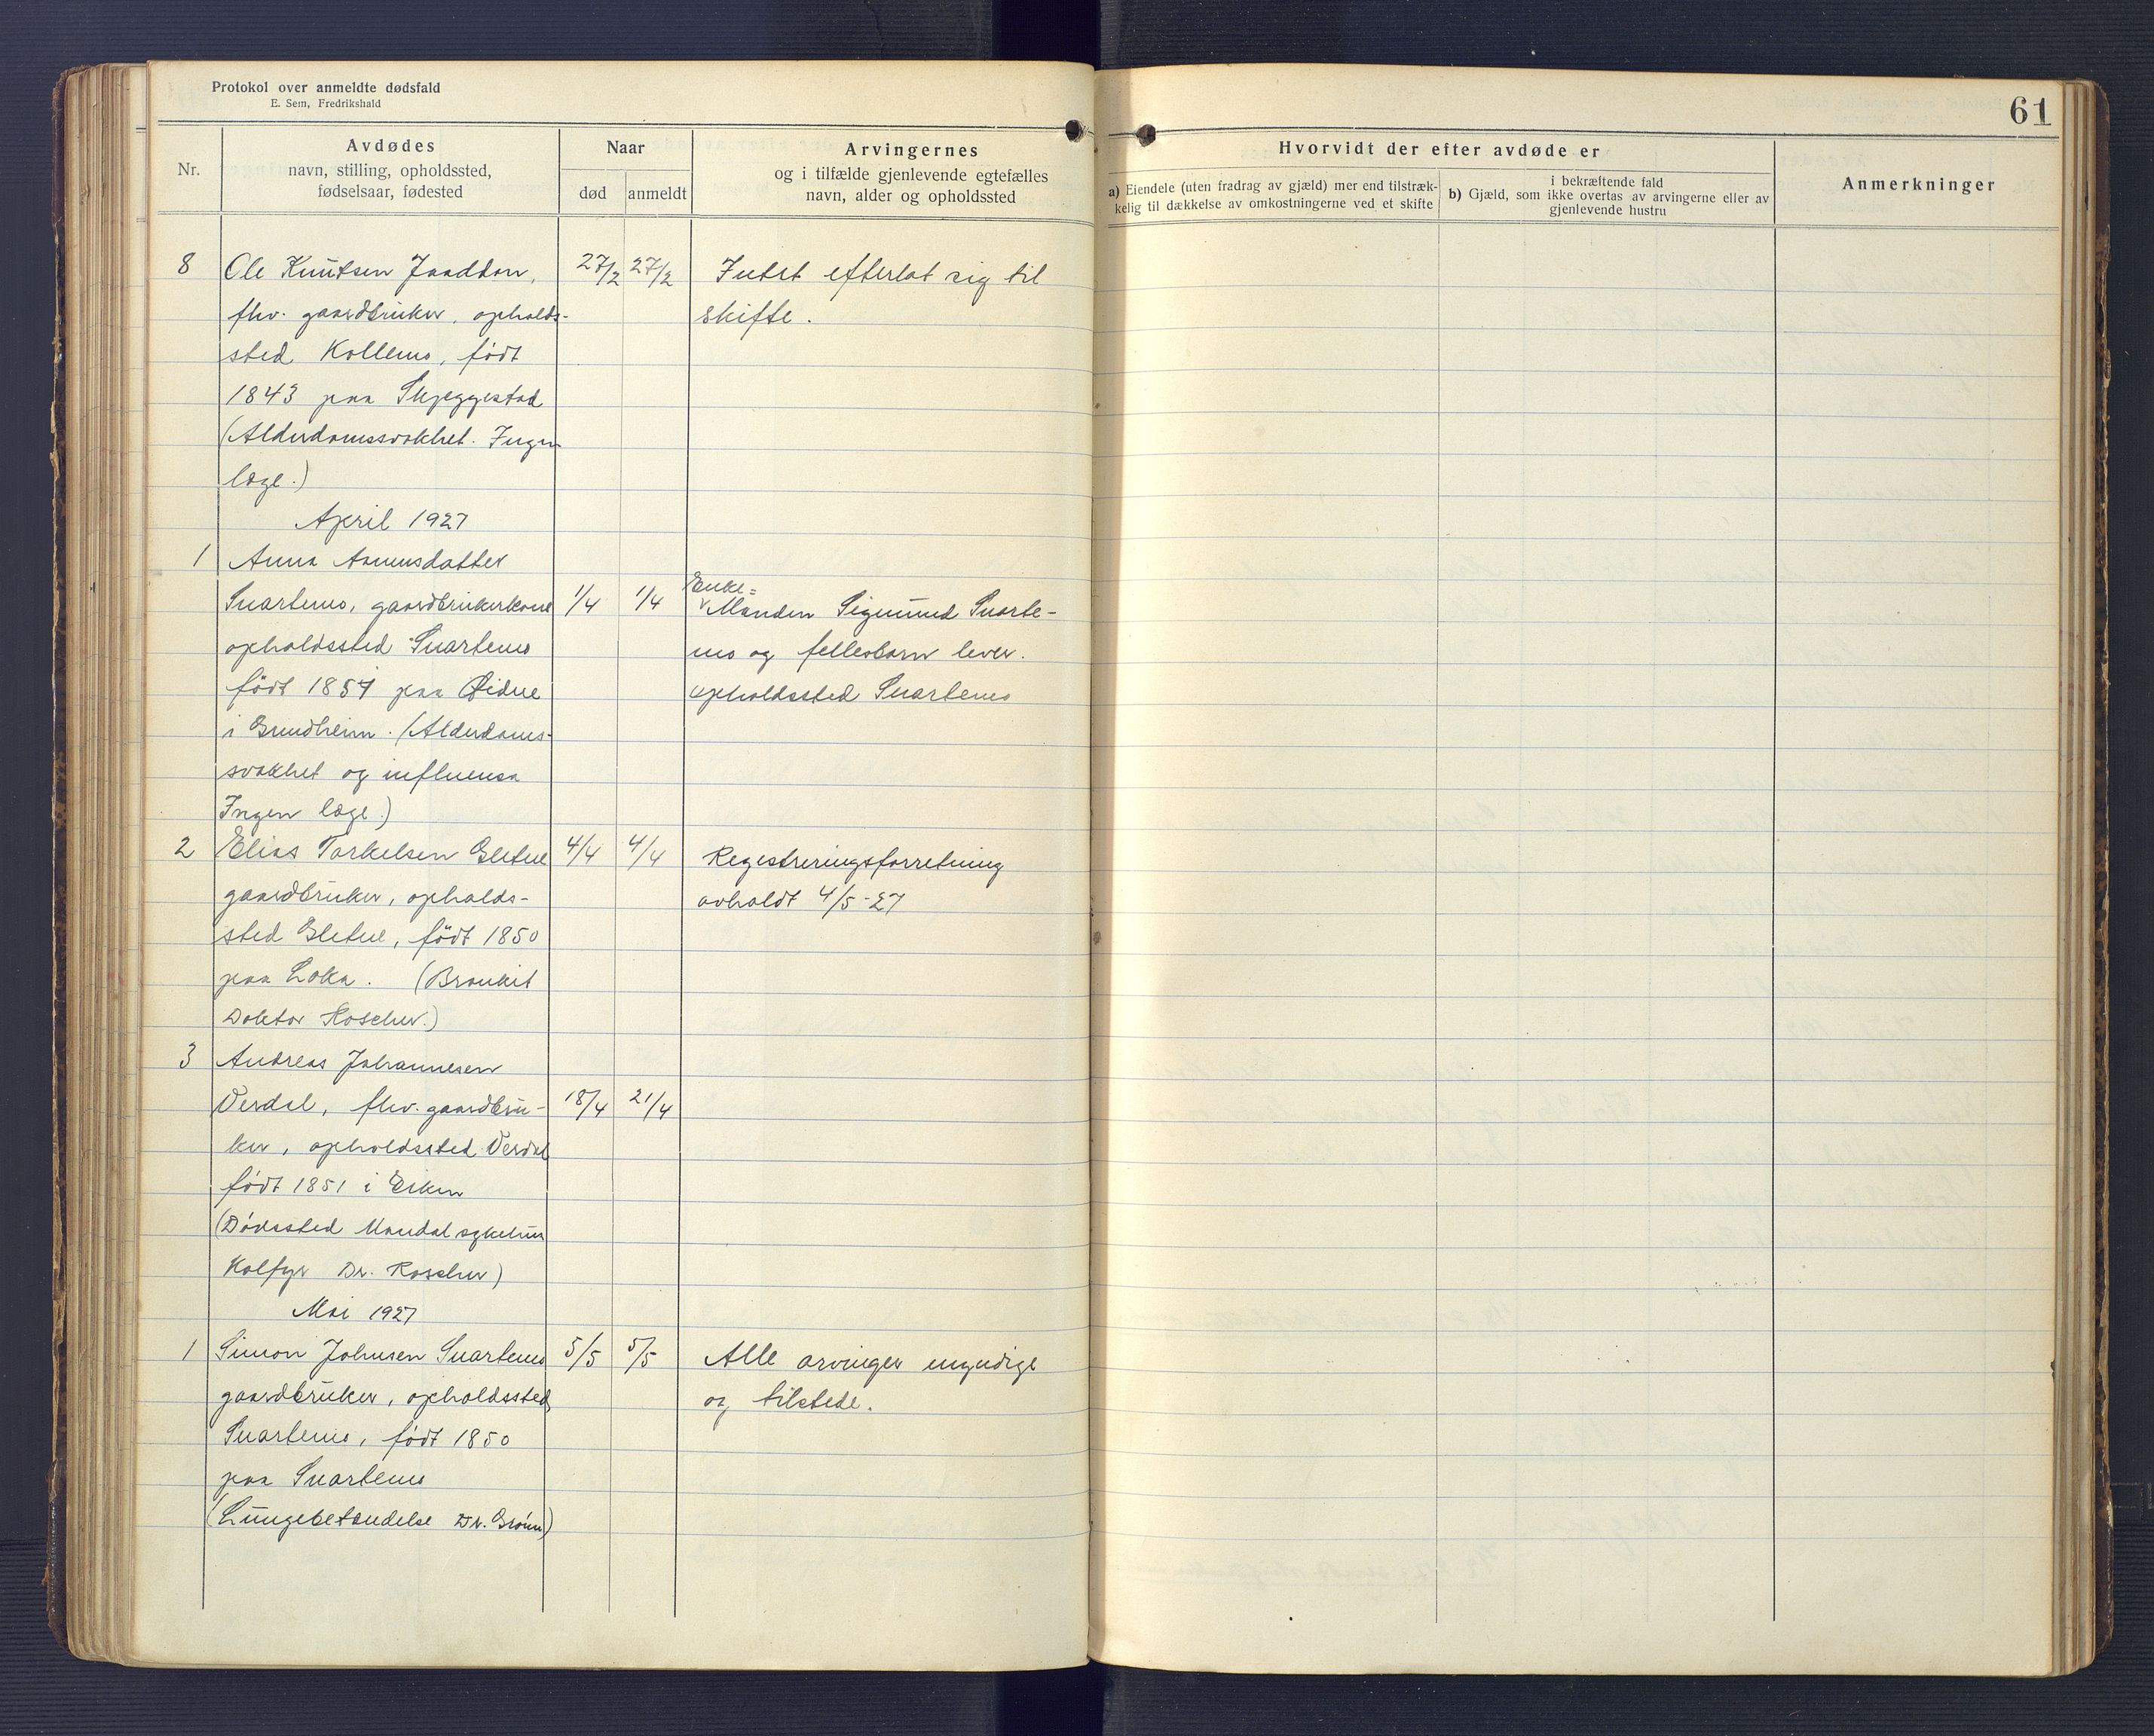 Protokol over anmeldte dødsfald
E. Sem, Fredrikshald
61
Nr.
Avdødes
navn, stilling, opholdssted,
fødselsaar, fødested
Naar
død
anmeldt
Arvingernes
og i tilfælde gjenlevende egtefælles
navn, alder og opholdssted
Hvorvidt der efter avdøde er
a) Eiendele (uten fradrag av gjæld) mer end tilstræk-
kelig til dækkelse av omkostningerne ved et skifte
i bekræftende fald
b) Gjæld, som ikke overtas av arvingerne eller av
gjenlevende hustru
Anmerkninger
8 Ole Knutsen 27/2 27/2 Intet efterlot sig til
fhv. gaardbruker, opholds- skifte.
sted Kollemo, født
1843 paa Skjeggestad
(Alderdomssvakhet. Ingen
læge.)
April 1927
1 Anna Aanensdatter
Snartemo, gaardbrukerkone 1/4 1/4 Enke=
Manden Sigmund Snarte-
opholdssted Snartemo mo og fellesbarn lever.
født 1857 paa Eidne opholdssted Snartemo
i Grindheim. (Alderdoms-
svakhet og influensa
Ingen læge.)
2 Elias Torkelsen Gletne 4/4 4/4 Registreringsforretning
gaardbruker, opholds- avholdt 4/5-27
sted Gletne, født 1850
paa Loka. (Bronkit
Doktor Roscher.)
3 Andreas Johannesen
Verdal, fhv. gaardbru- 18/4 21/4
ker, opholdssted Verdal
født 1851 i Eiken
(Dødssted Mandal sykehus
Dr. Roscher)
Mai 1927
1 Simon Johnsen Snartemo 5/5 5/5 Alle arvinger myndige
gaardbruker, opholdssted og tilstede.
Snartemo, født 1850
paa Snartemo
(Lungebetendelse Dr. Grönn)